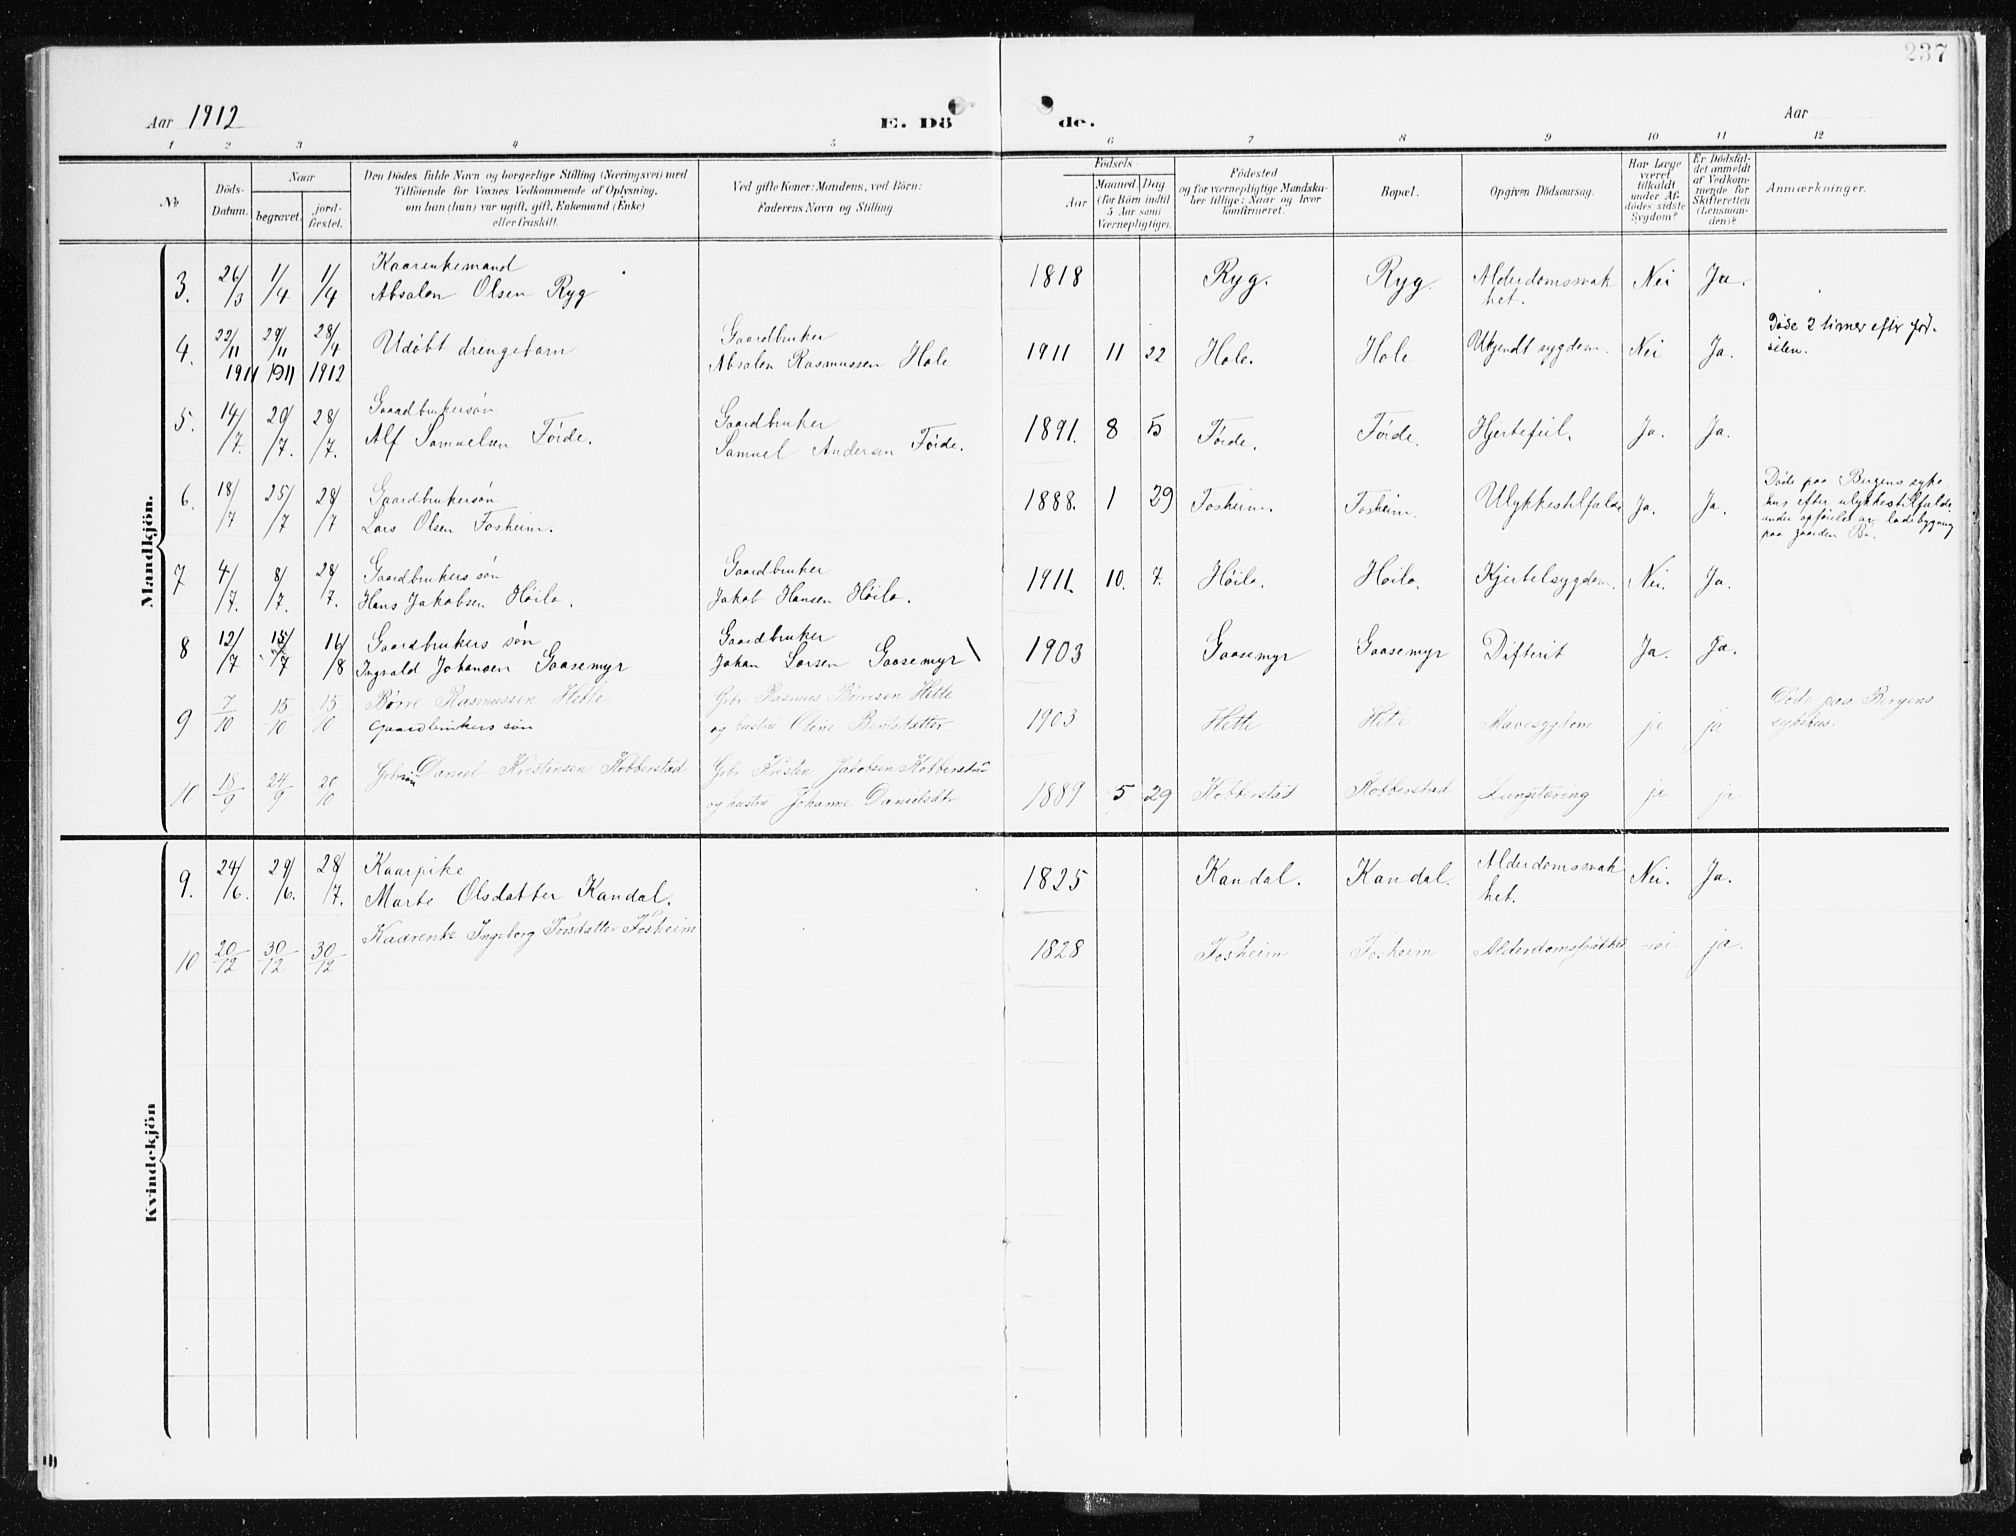 237
Aar 1912 E. Dö de. Aar
1 2 3 4 5 6 7 8 9 10 11 12
№
Döds-Datum.
Naar
begravet.
jordfæstet.
Den Dödes fulde Navn og borgerlige Stilling (Næringsvei) med
Tilföiende for Voxnes Vedkommende af Oplysning,
om han (hun) var ugift, gift, Enkemand (Enke)
eller fraskilt.
Ved gifte Koner: Mandens, ved Börn:
Faderens Navn og Stilling.
Födsels-
Aar
Maaned Dag
(for Börn indtil
5 Aar samt
Værnepligtige).
Födested
og for værnepligtige Mandska-
ber tillige: Naar og hvor
konfirmeret.
Bopæl.
Opgiven Dödsaarsag.
Har Læge
været
tilkaldt
under Af-
dödes sidste
Sygdom?
Er Dödsfal-
det anmeldt
af Vedkom-
mende for
Skifteretten
(Lensman-
den)?
Anmærkninger.
Mandkjön.
3. 26/3 1/4 1/4 Kaarenkemand
Absalon Olsen Ryg 1818 Ryg. Ryg. Alderdomssvakhet. Nei Ja.
4. 22/11 1911 29/11 1911 28/4 1912 Udöbt drengebarn Gaardbruker
Absalon Rasmussen Hole 1911 11 22 Hole. Hole Ukjendt sygdom. Nei Ja. Døde 2 timer efter födselen.
5. 14/7. 20/7. 28/7. Gaardbrukersøn
Alf Samuelsen Förde. Gaardbruker
Samuel Andersen Förde. 1891. 8 5 Förde. Förde. Hjertefeil. Ja. Ja.
6. 18/7 25/7 28/7 Gaardbrukersøn
Lars Olsen Fosheim. 1888. 1 29 Fosheim. Fosheim. Ulykkestilfælde Ja. Ja. Døde paa Bergens syke-
hus efter ulykkestilfælde
under opförelse av ladebygning
paa gaarden Bö.
7 4/7. 8/7. 28/7. Gaardbrukers søn
Hans Jakobsen Höilo. Gaardbruker
Jakob Hansen Höilo. 1911. 10. 7. Höilo. Höilo. Kjertelsygdom. Nei. Ja.
8 12/7 15/7 16/8 Gaardbrukers søn
Ingvald Johansen Gaasemyr Gaardbruker
Johan Larsen Gaasemyr 1903 Gaasemyr Gaasemyr Difterit Ja. Ja.
9 7/10 15/10 15/10 Børre Rasmussen Hetle
Gaardbrukers søn Gbr Rasmus Børresen Hetle
og hustru Oline Bentsdatter 1903 Hetle Hetle Mavesygdom ja ja Døde paa Bergens
sykehus.
10 18/9 24/9 20/10 Gbr søn Daniel Kristensen Kobberstad Gbr Kristen Jakobsen Kobberstad
og hustru Johanne Danielsdtr 1889 5 29 Kobberstad Kobberstad Lungetæring ja ja
Kvindekjön
9. 24/6. 29/6. 28/7. Kaarpike
Marte Olsdatter Kandal. 1825 Kandal. Kandal. Alderdomssvakhet. Nei. Ja.
10 20/12 30/12 30/12 Kaarenke Ingeborg Torsdatter Fosheim 1828 Fosheim Fosheim nei ja.